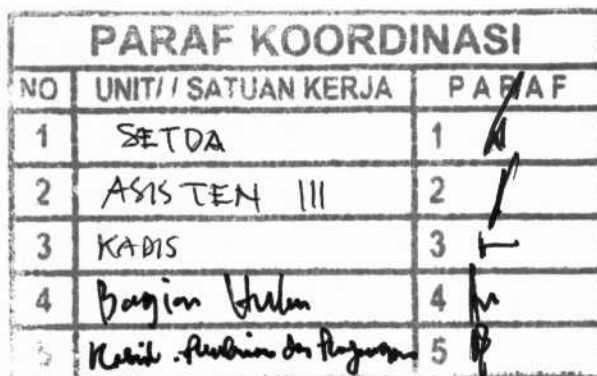 PARAF KOORDINASI
NO UNIT/ / SATUAN KERJA PARAF
1 SETDA 1
2 ASISTEN III 2
3 KADIS 3
4 Bagian Hukum 4
5 Kabid. dan 5